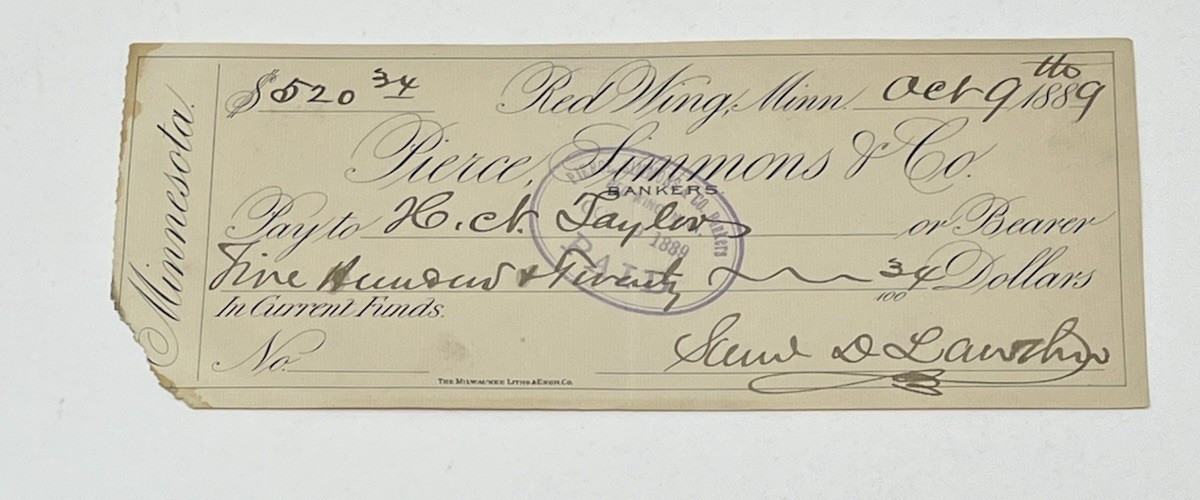 Minnesota.
$520 34 Red Wing, Minn. Oct 9th 1889
Pierce, Simmons & Co.
BANKERS
Pay to H. A. Taylor or Bearer
Five Hundred & Twenty 34/100 Dollars
In Current Funds.
No.
THE MILWAUKEE LITHO & ENGR. CO.
Co. Bankers
1889
PAID